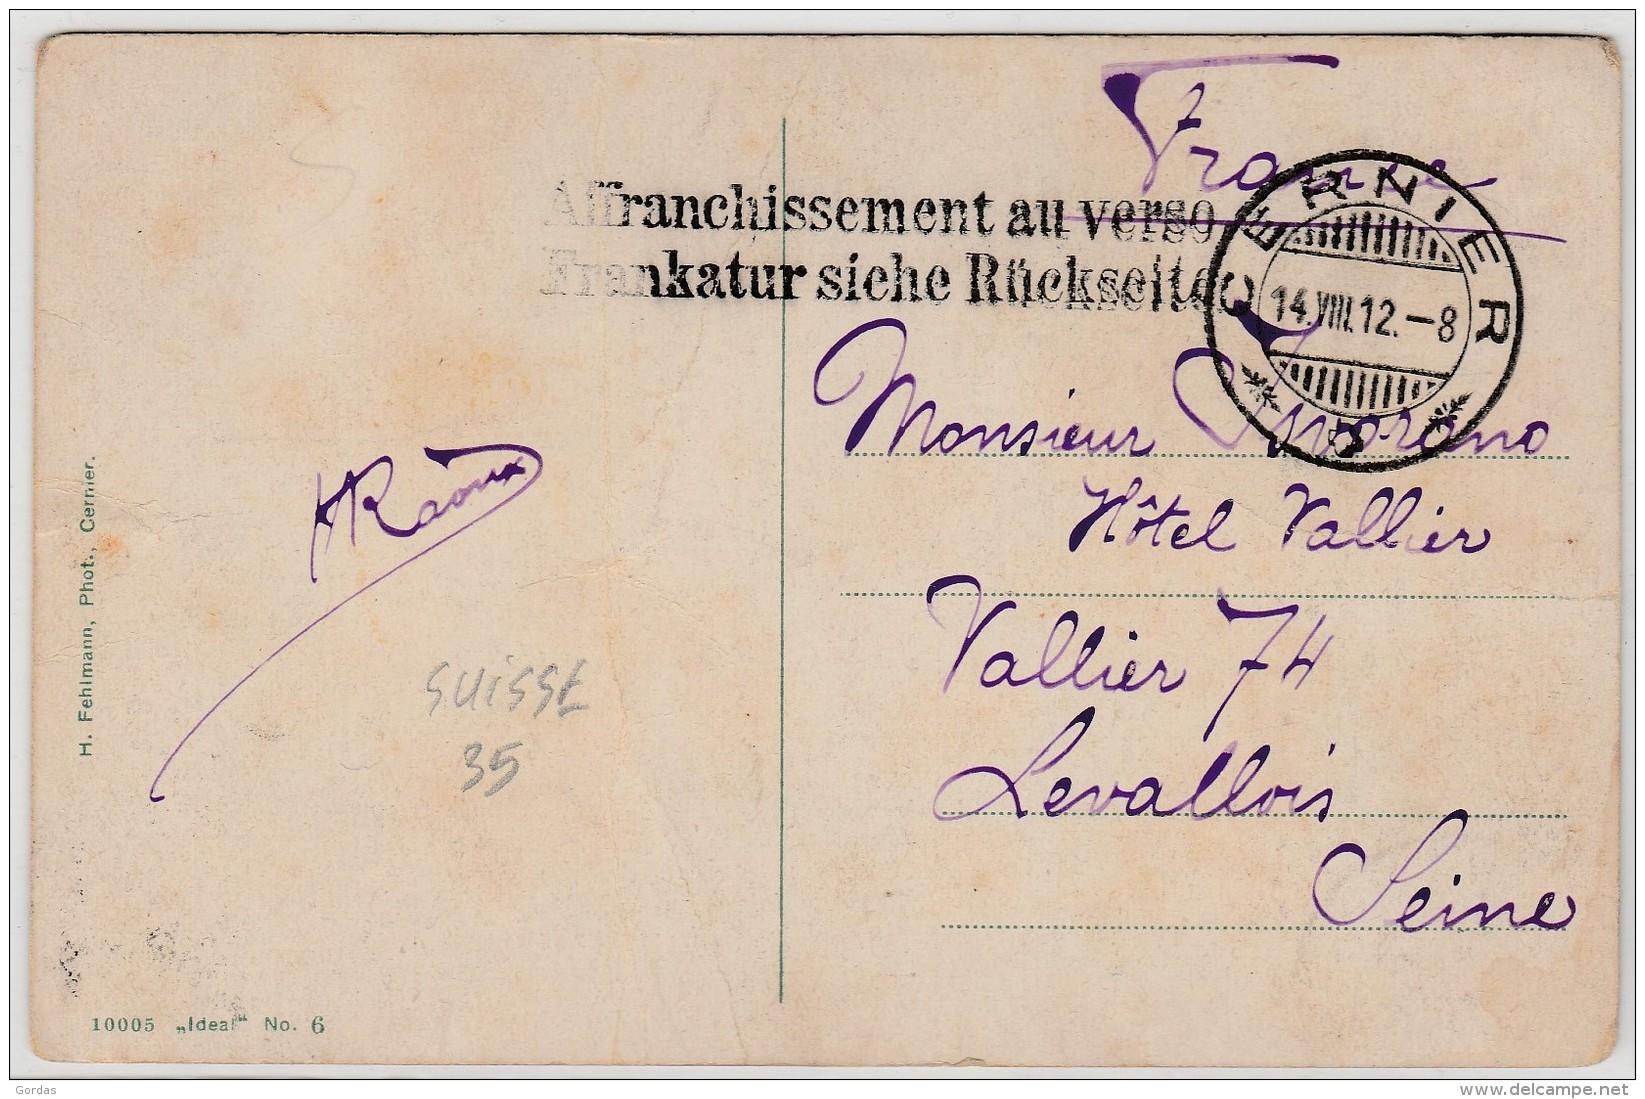 France
Affranchissement au verso
Frankatur siehe Rückseite
CERNIER
14.VIII.12.–8
Monsieur
Hôtel Vallier
Vallier 74
Levallois
Seine
Raoux
SUISSE
35
H. Fehlmann, Phot., Cernier.
10005 „Ideal“ No. 6
Gordas
www.delcampe.net